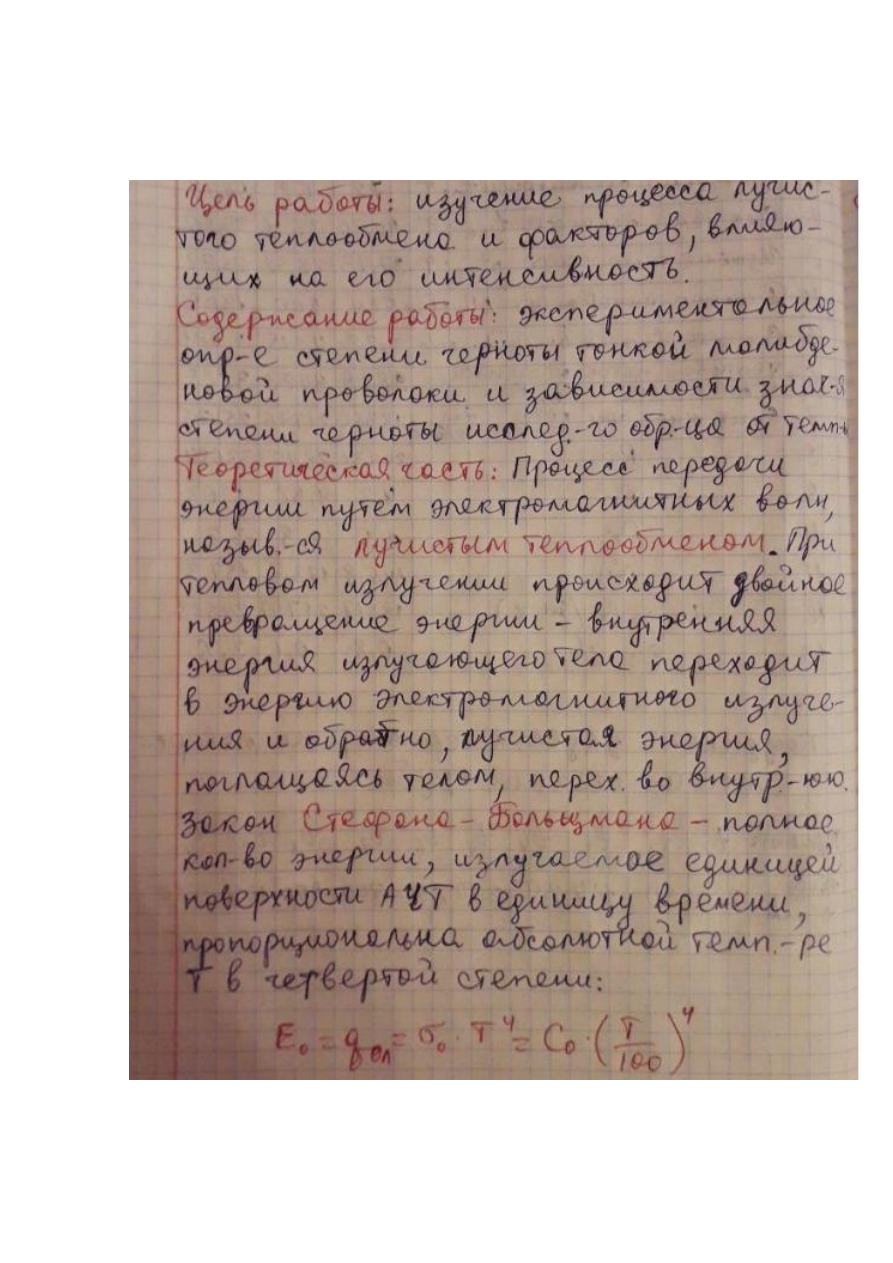 Цель работы: изучение процесса лучис-
того теплообмена и факторов, влияю-
щих на его интенсивность.
Содержание работы: экспериментальное
опр-е степени черноты тонкой молибде-
новой проволоки и зависимости знач-я
степени черноты исслед.-го обр-ца от темп-ы
Теоретическая часть: Процесс передачи
энергии путем электромагнитных волн,
назыв.-ся лучистым теплообменом. При
тепловом излучении происходит двойное
превращение энергии – внутренняя
энергия излучающего тела переходит
в энергию электромагнитного излуче-
ния и обратно, лучистая энергия,
поглощаясь телом, перех. во внутр-юю.
Закон Стефана – Больцмана – полное
кол-во энергии, излучаемое единицей
поверхности АЧТ в единицу времени,
пропорциональна абсолютной темп.-ре
T в четвертой степени:
E₀ = q₀л = σ₀ · T⁴ = C₀ · (T/100)⁴